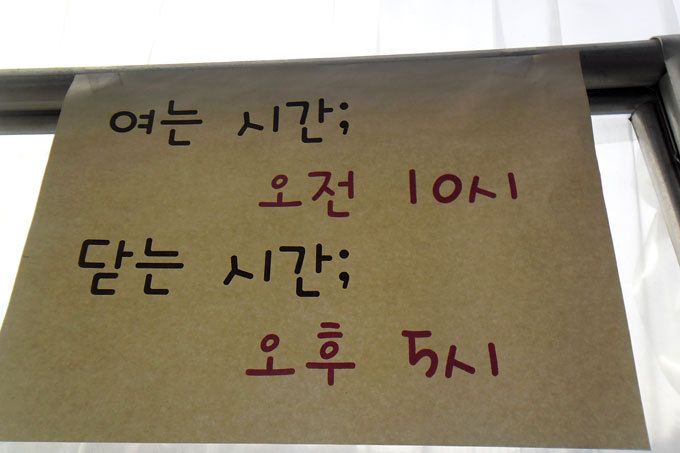 여는 시간;
오전 10시
닫는 시간;
오후 5시